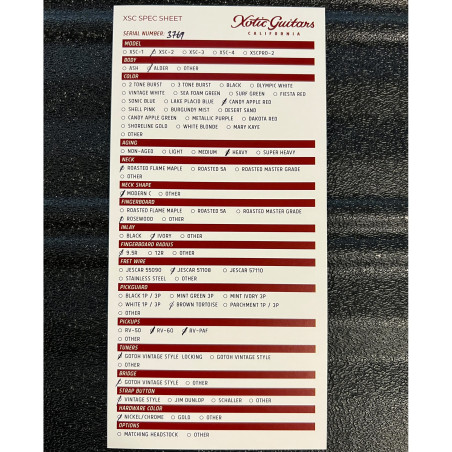 XSC SPEC SHEET
Xotic Guitars
CALIFORNIA
SERIAL NUMBER: 3769
MODEL
XSC-1 XSC-2 XSC-3 XSC-4 XSCPRO-2
BODY
ASH ALDER OTHER
COLOR
2 TONE BURST 3 TONE BURST BLACK OLYMPIC WHITE
VINTAGE WHITE SEA FOAM GREEN SURF GREEN FIESTA RED
SONIC BLUE LAKE PLACID BLUE CANDY APPLE RED
SHELL PINK BURGUNDY MIST DESERT SAND
CANDY APPLE GREEN METALLIC PURPLE DAKOTA RED
SHORELINE GOLD WHITE BLONDE MARY KAYE
OTHER
AGING
NON-AGED LIGHT MEDIUM HEAVY SUPER HEAVY
NECK
ROASTED FLAME MAPLE ROASTED 5A ROASTED MASTER GRADE
OTHER
NECK SHAPE
MODERN C OTHER
FINGERBOARD
ROASTED FLAME MAPLE ROASTED 5A ROASTED MASTER GRADE
ROSEWOOD OTHER
INLAY
BLACK IVORY OTHER
FINGERBOARD RADIUS
9.5R 12R OTHER
FRET WIRE
JESCAR 55090 JESCAR 51108 JESCAR 57110
STAINLESS STEEL OTHER
PICKGUARD
BLACK 1P / 3P MINT GREEN 3P MINT IVORY 3P
WHITE 1P / 3P BROWN TORTOISE PARCHMENT 1P / 3P
OTHER
PICKUPS
RV-50 RV-60 RV-PAF
OTHER
TUNERS
GOTOH VINTAGE STYLE LOCKING GOTOH VINTAGE STYLE
OTHER
BRIDGE
GOTOH VINTAGE STYLE OTHER
STRAP BUTTON
VINTAGE STYLE JIM DUNLOP SCHALLER OTHER
HARDWARE COLOR
NICKEL/CHROME GOLD OTHER
OPTIONS
MATCHING HEADSTOCK OTHER